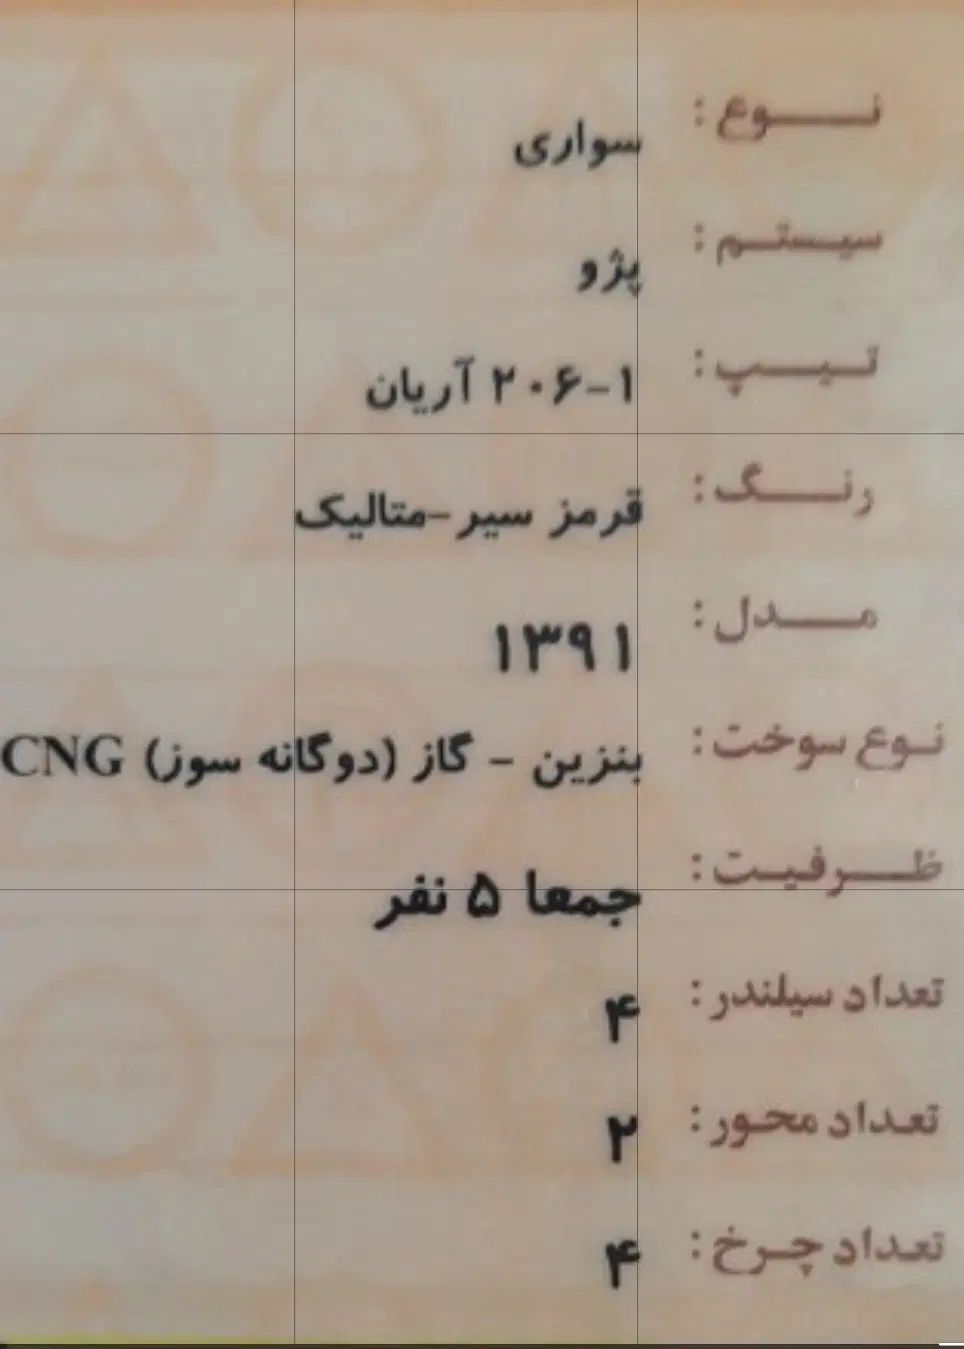 نوع : سواری
سیستم : پژو
تیپ : ۲۰۶-۱ آریان
رنگ : قرمز سیر-متالیک
مدل : ۱۳۹۱
نوع سوخت : بنزین - گاز (دوگانه سوز) CNG
ظرفیت : جمعا ۵ نفر
تعداد سیلندر : ۴
تعداد محور : ۲
تعداد چرخ : ۴